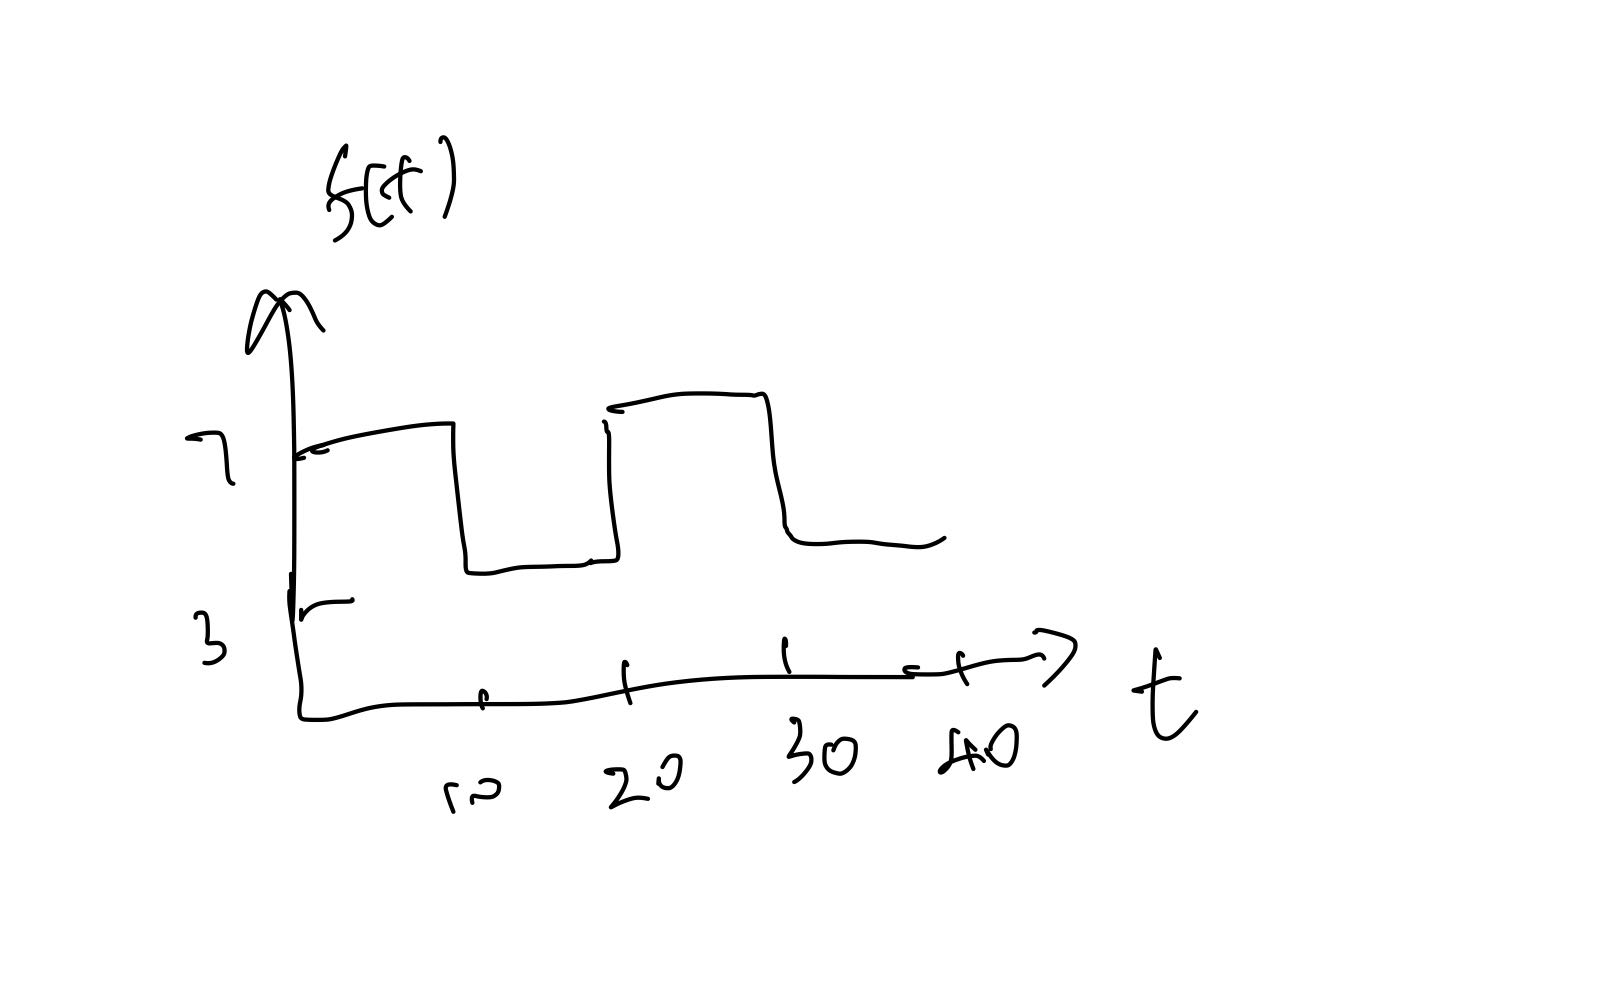 f(t)
7
3
10 20 30 40 t